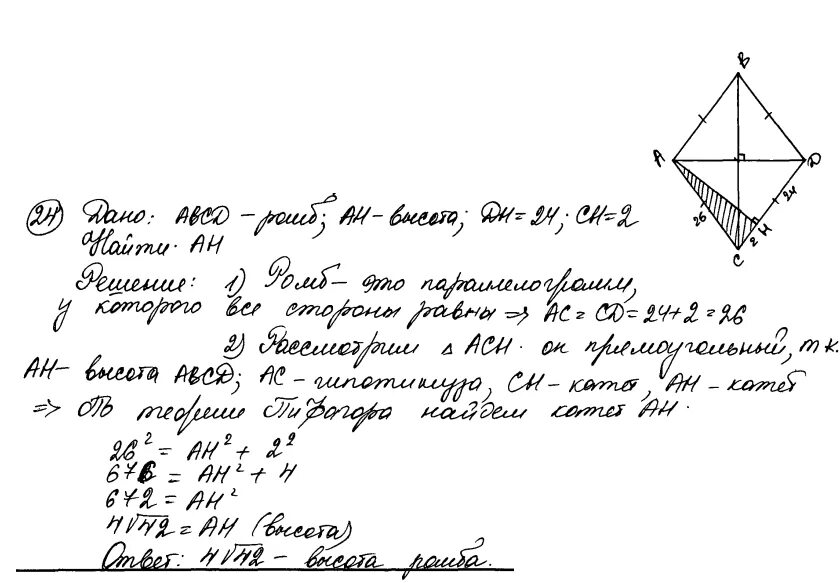 B
A
D
24
26
H
2
C
24 Дано: ABCD – ромб; AH – высота; DH = 24; CH = 2
Найти. AH
Решение: 1) Ромб – это параллелограмм,
у которого все стороны равны => AC = CD = 24 + 2 = 26
2) Рассмотрим △ ACH. он прямоугольный, т.к.
AH – высота ABCD; AC – гипотинуза, CH – катет, AH – катет
=> По теореме Пифагора найдем катет AH.
26² = AH² + 2²
676 = AH² + 4
672 = AH²
4√42 = AH (высота)
Ответ: 4√42 – высота ромба.